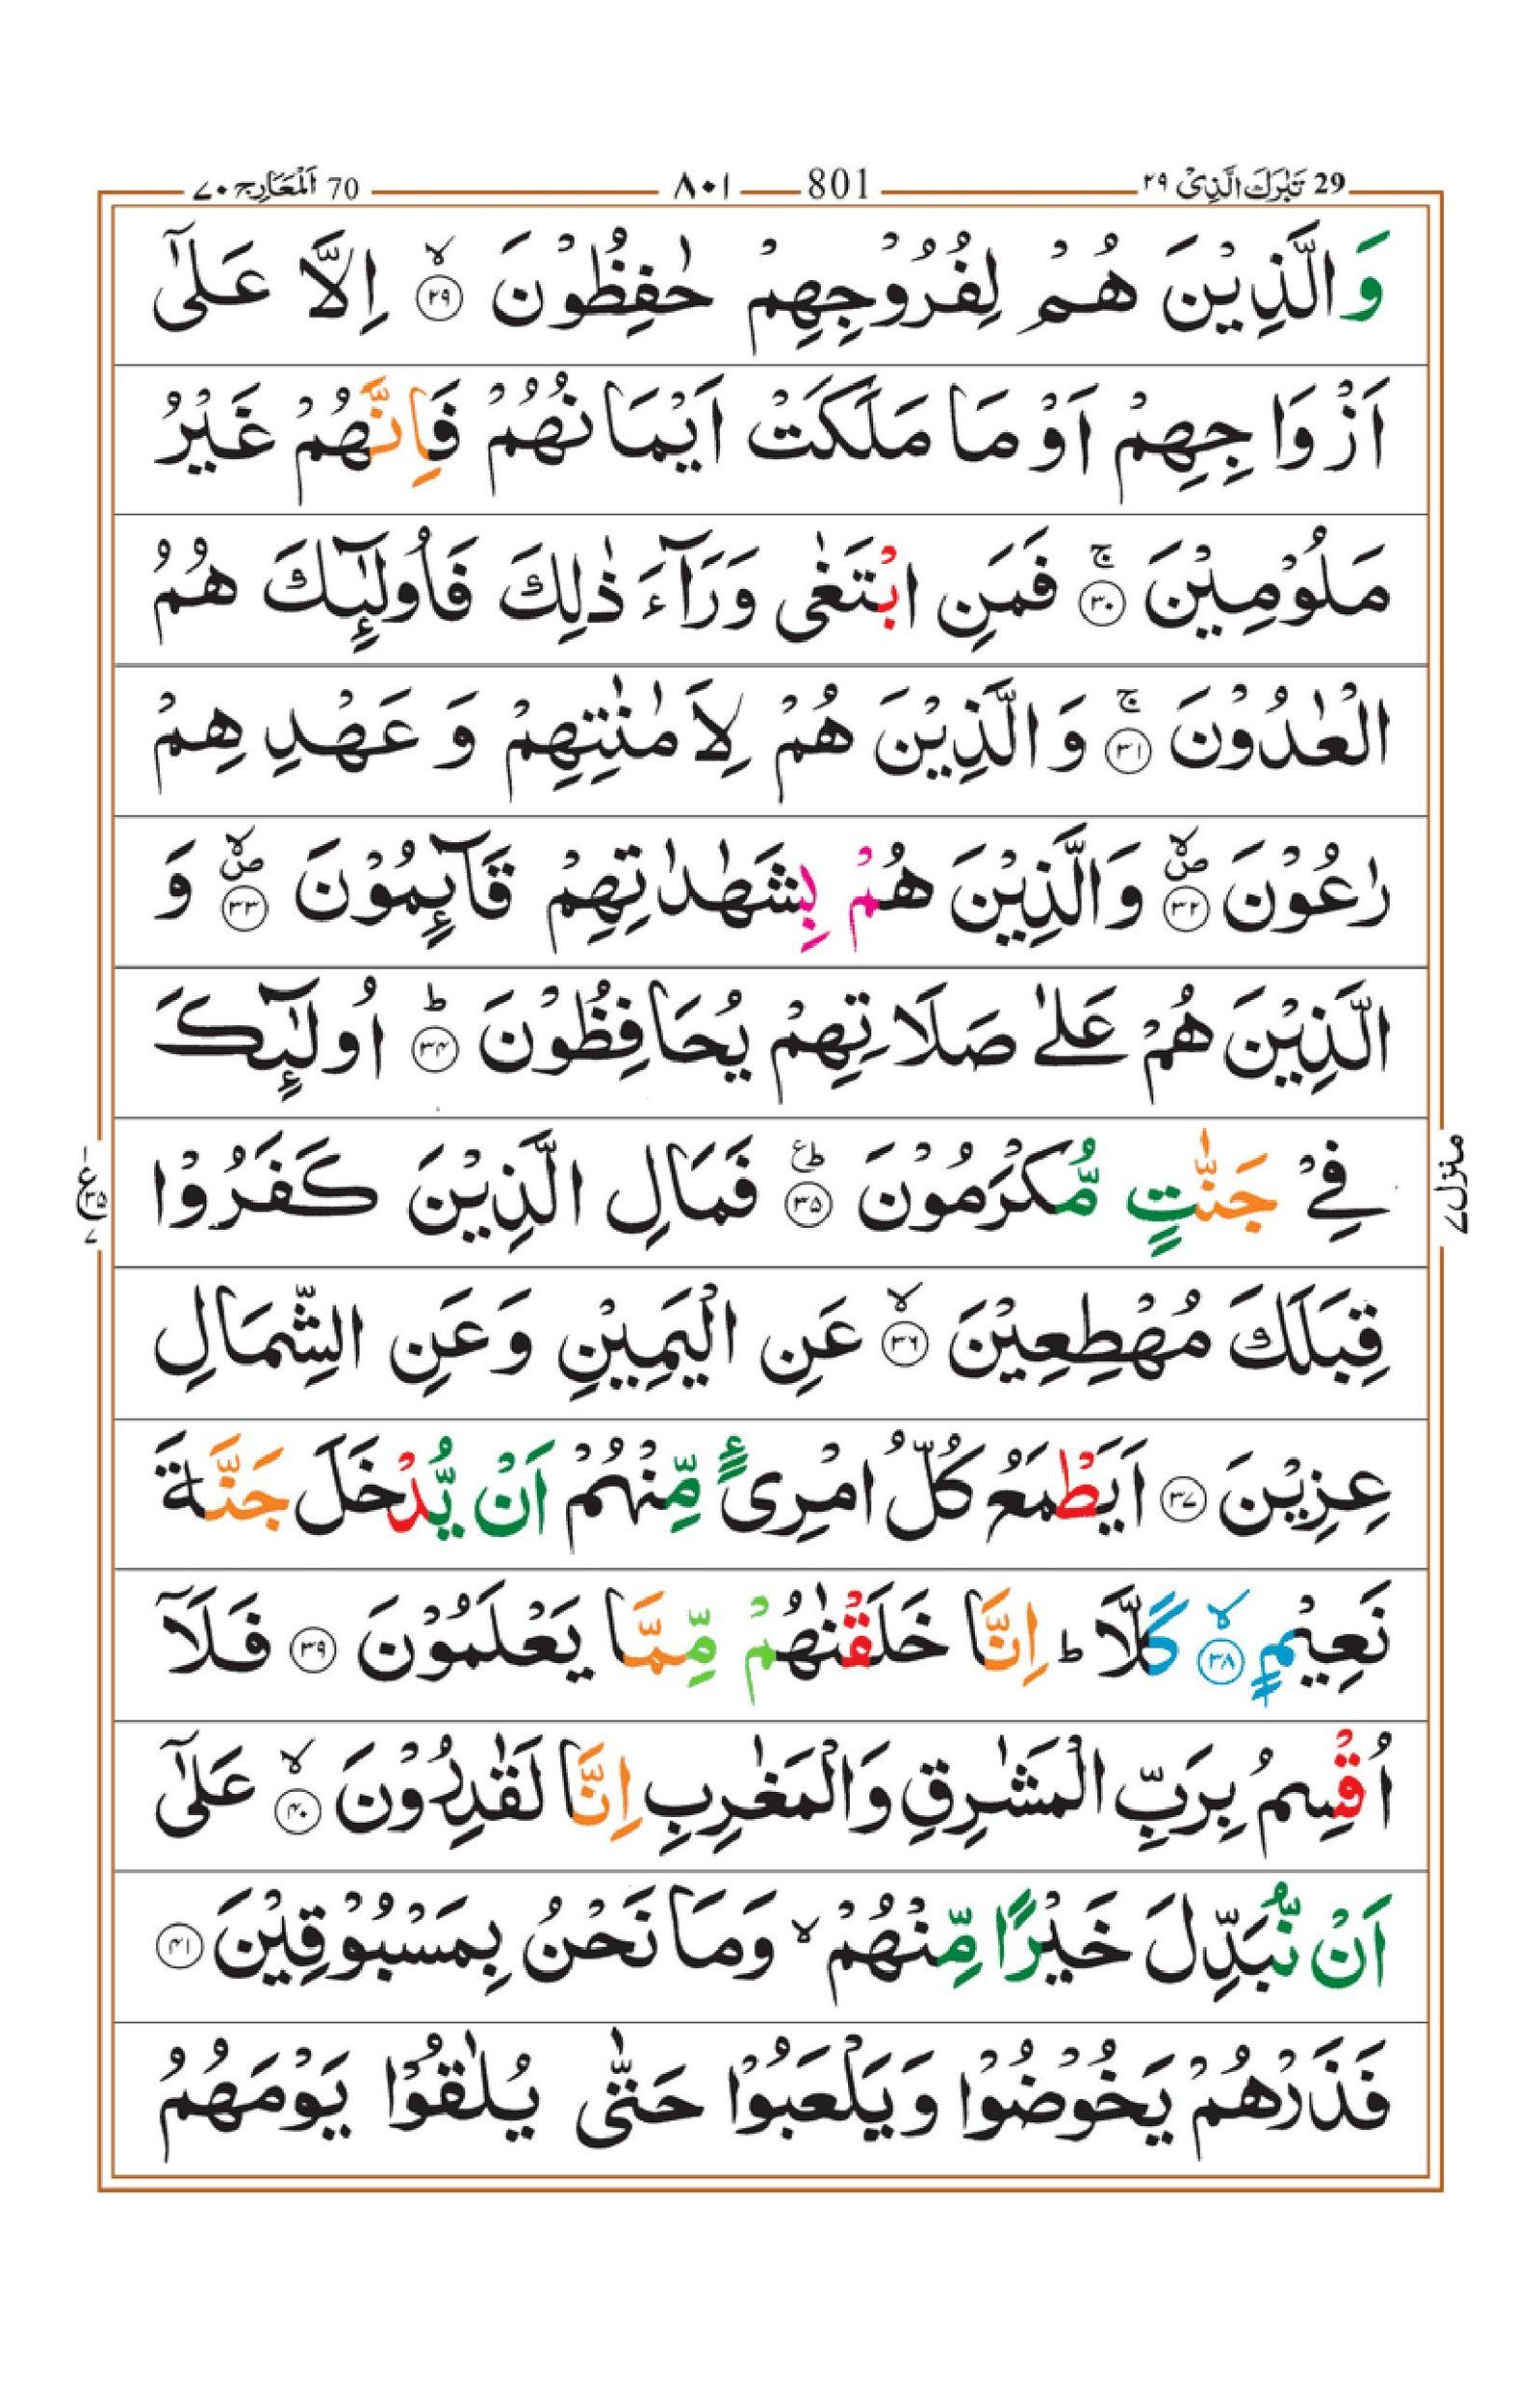 29 تَبٰرَكَ الَّذِیْ ٢٩
801
٨٠١
70 اَلْمَعَارِج ٧٠
وَالَّذِیْنَ هُمْ لِفُرُوْجِهِمْ حٰفِظُوْنَ ۙ﴿۲۹﴾ اِلَّا عَلٰۤی
اَزْوَاجِهِمْ اَوْ مَا مَلَكَتْ اَیْمَانُهُمْ فَاِنَّهُمْ غَیْرُ
مَلُوْمِیْنَ ۚ﴿۳۰﴾ فَمَنِ ابْتَغٰی وَرَآءَ ذٰلِكَ فَاُولٰٓئِكَ هُمُ
الْعٰدُوْنَ ۚ﴿۳۱﴾ وَ الَّذِیْنَ هُمْ لِاَمٰنٰتِهِمْ وَ عَهْدِهِمْ
رٰعُوْنَ ۪ۙ﴿۳۲﴾ وَالَّذِیْنَ هُمْ بِشَهٰدٰتِهِمْ قَآئِمُوْنَ ۪ۙ﴿۳۳﴾ وَ
الَّذِیْنَ هُمْ عَلٰی صَلَاتِهِمْ یُحَافِظُوْنَ ؕ﴿۳۴﴾ اُولٰٓئِكَ
فِیْ جَنّٰتٍ مُّكْرَمُوْنَ ؕع﴿۳۵﴾ فَمَالِ الَّذِیْنَ كَفَرُوْا
قِبَلَكَ مُهْطِعِیْنَ ۙ﴿۳۶﴾ عَنِ الْیَمِیْنِ وَعَنِ الشِّمَالِ
عِزِیْنَ ﴿۳۷﴾ اَیَطْمَعُ كُلُّ امْرِیٴٍ مِّنْهُمْ اَنْ یُّدْخَلَ جَنَّةَ
نَعِیْمٍ ۙ﴿۳۸﴾ كَلَّا ؕ اِنَّا خَلَقْنٰهُمْ مِّمَّا یَعْلَمُوْنَ ﴿۳۹﴾ فَلَاۤ
اُقْسِمُ بِرَبِّ الْمَشٰرِقِ وَالْمَغٰرِبِ اِنَّا لَقٰدِرُوْنَ ۙ﴿۴۰﴾ عَلٰۤی
اَنْ نُّبَدِّلَ خَیْرًا مِّنْهُمْ ۙ وَمَا نَحْنُ بِمَسْبُوْقِیْنَ ﴿۴۱﴾
فَذَرْهُمْ یَخُوْضُوْا وَیَلْعَبُوْا حَتّٰی یُلٰقُوْا یَوْمَهُمُ
منزل ٧
ع ۳۵ ٧